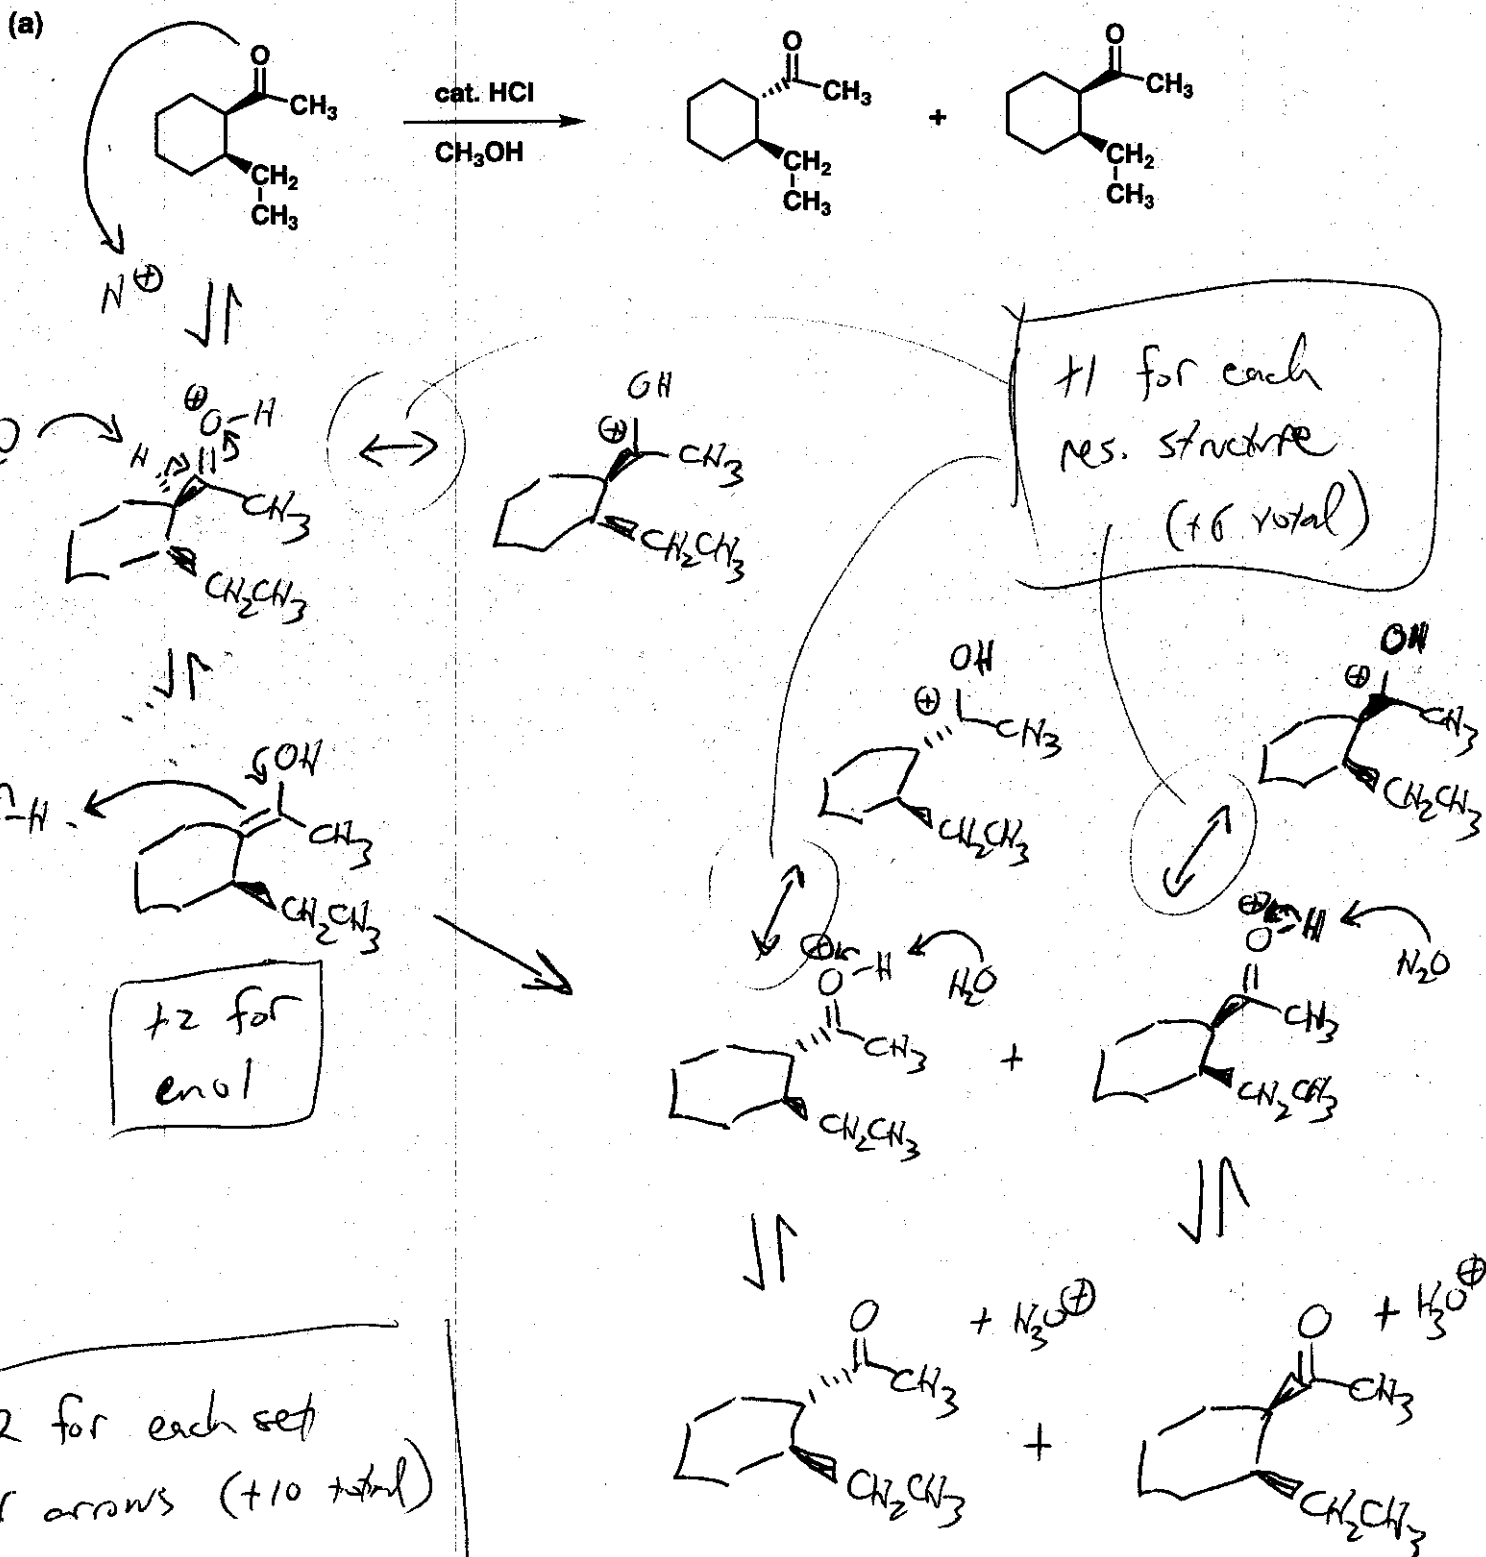 (a)
O
CH₃
CH₂
CH₃
cat. HCl
CH₃OH
O
CH₃
CH₂
CH₃
+
O
CH₃
CH₂
CH₃
H⊕
⊕
O-H
H
CH₃
CH₂CH₃
OH
⊕
CH₃
CH₂CH₃
+1 for each
res. structure
(+6 total)
OH
CH₃
CH₂CH₃
-H
+2 for
enol
OH
⊕
CH₃
CH₂CH₃
OH
⊕
CH₃
CH₂CH₃
⊕
O-H
H₂O
CH₃
CH₂CH₃
+
⊕
O-H
H₂O
CH₃
CH₂CH₃
O
+ H₃O⊕
CH₃
CH₂CH₃
+
O
+ H₃O⊕
CH₃
CH₂CH₃
2 for each set
arrows (+10 total)